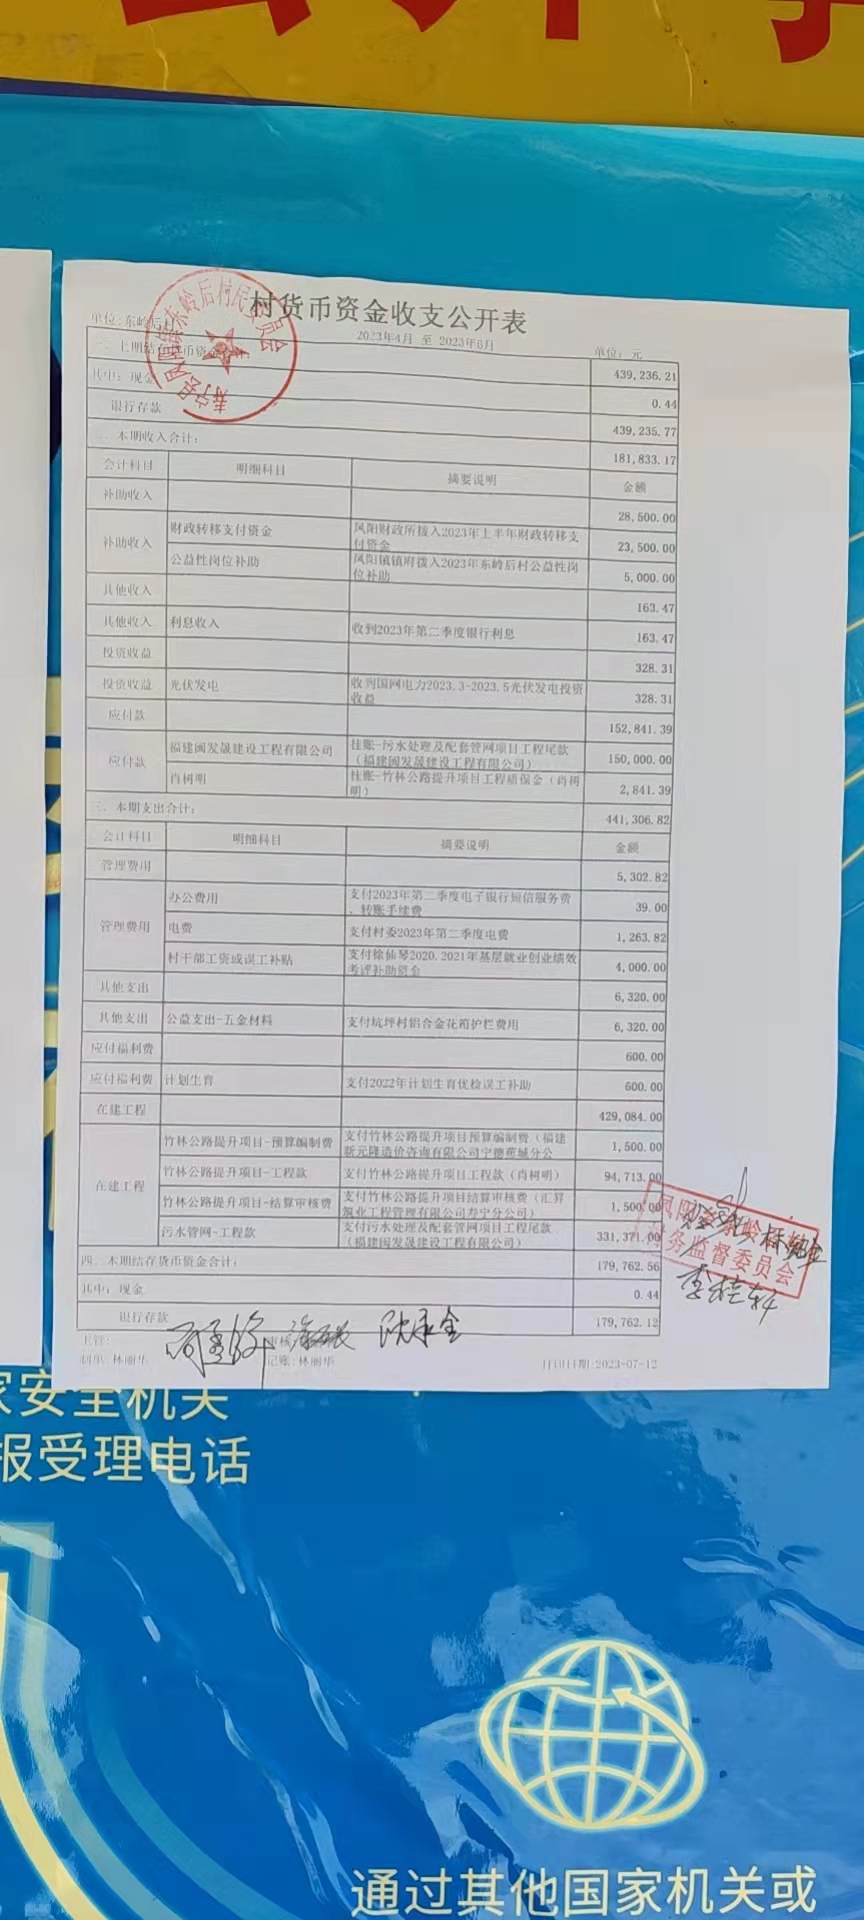 村货币资金收支公开表
单位:东岭后村
2023年4月 至 2023年6月
单位: 元
一. 上期结存货币资金 439,236.21
其中: 现金 0.44
银行存款 439,235.77
二. 本期收入合计: 181,833.17
会计科目 明细科目 摘要说明 金额
补助收入 28,500.00
补助收入 财政转移支付资金 凤阳财政所拨入2023年上半年财政转移支付资金 23,500.00
公益性岗位补助 凤阳镇镇府拨入2023年东岭后村公益性岗位补助 5,000.00
其他收入 163.47
其他收入 利息收入 收到2023年第二季度银行利息 163.47
投资收益 328.31
投资收益 光伏发电 收到国网电力2023.3-2023.5光伏发电投资收益 328.31
应付款 152,841.39
应付款 福建闽发晟建设工程有限公司 挂账-污水处理及配套管网项目工程尾款（福建闽发晟建设工程有限公司） 150,000.00
肖树明 挂账-竹林公路提升项目工程质保金（肖树明） 2,841.39
三. 本期支出合计: 441,306.82
会计科目 明细科目 摘要说明 金额
管理费用 5,302.82
管理费用 办公费用 支付2023年第二季度电子银行短信服务费、转账手续费 39.00
电费 支付村委2023年第二季度电费 1,263.82
村干部工资或误工补贴 支付徐仙琴2020.2021年基层就业创业绩效考评补助资金 4,000.00
其他支出 6,320.00
其他支出 公益支出-五金材料 支付坑坪村铝合金花箱护栏费用 6,320.00
应付福利费 600.00
应付福利费 计划生育 支付2022年计划生育优检误工补助 600.00
在建工程 429,084.00
在建工程 竹林公路提升项目-预算编制费 支付竹林公路提升项目预算编制费（福建新元隆造价咨询有限公司宁德蕉城分公 1,500.00
竹林公路提升项目-工程款 支付竹林公路提升项目工程款（肖树明） 94,713.00
竹林公路提升项目-结算审核费 支付竹林公路提升项目结算审核费（汇昇筑业工程管理有限公司寿宁分公司） 1,500.00
污水管网-工程款 支付污水处理及配套管网项目工程尾款（福建闽发晟建设工程有限公司） 331,371.00
四. 本期结存货币资金合计: 179,762.56
其中: 现金 0.44
银行存款 179,762.12
主管: 审核
制单: 林丽华 记账: 林丽华 打印日期:2023-07-12
务监督委员会
家安全机关
报受理电话
通过其他国家机关或